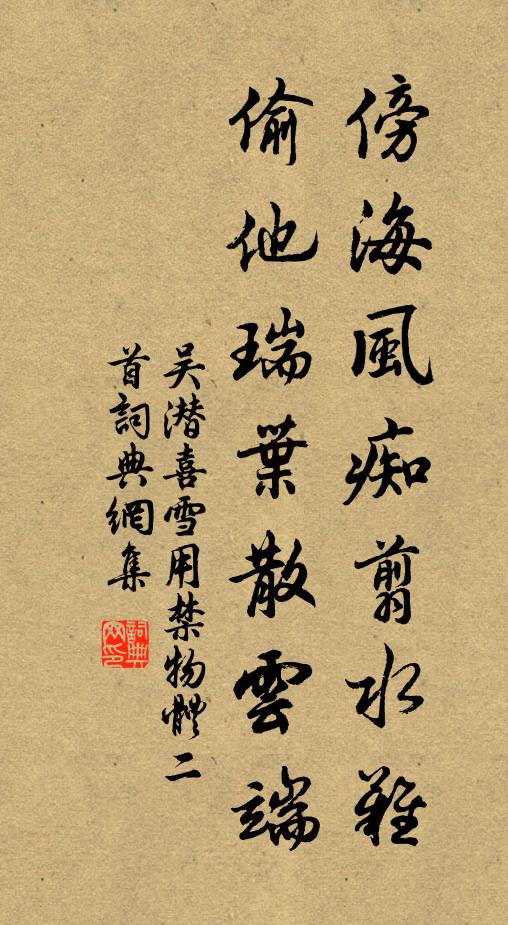 傍海風痴翦水難
偷他瑞葉散雲端
吴潜喜雪用禁物體二
首詞典網集
詞典網印